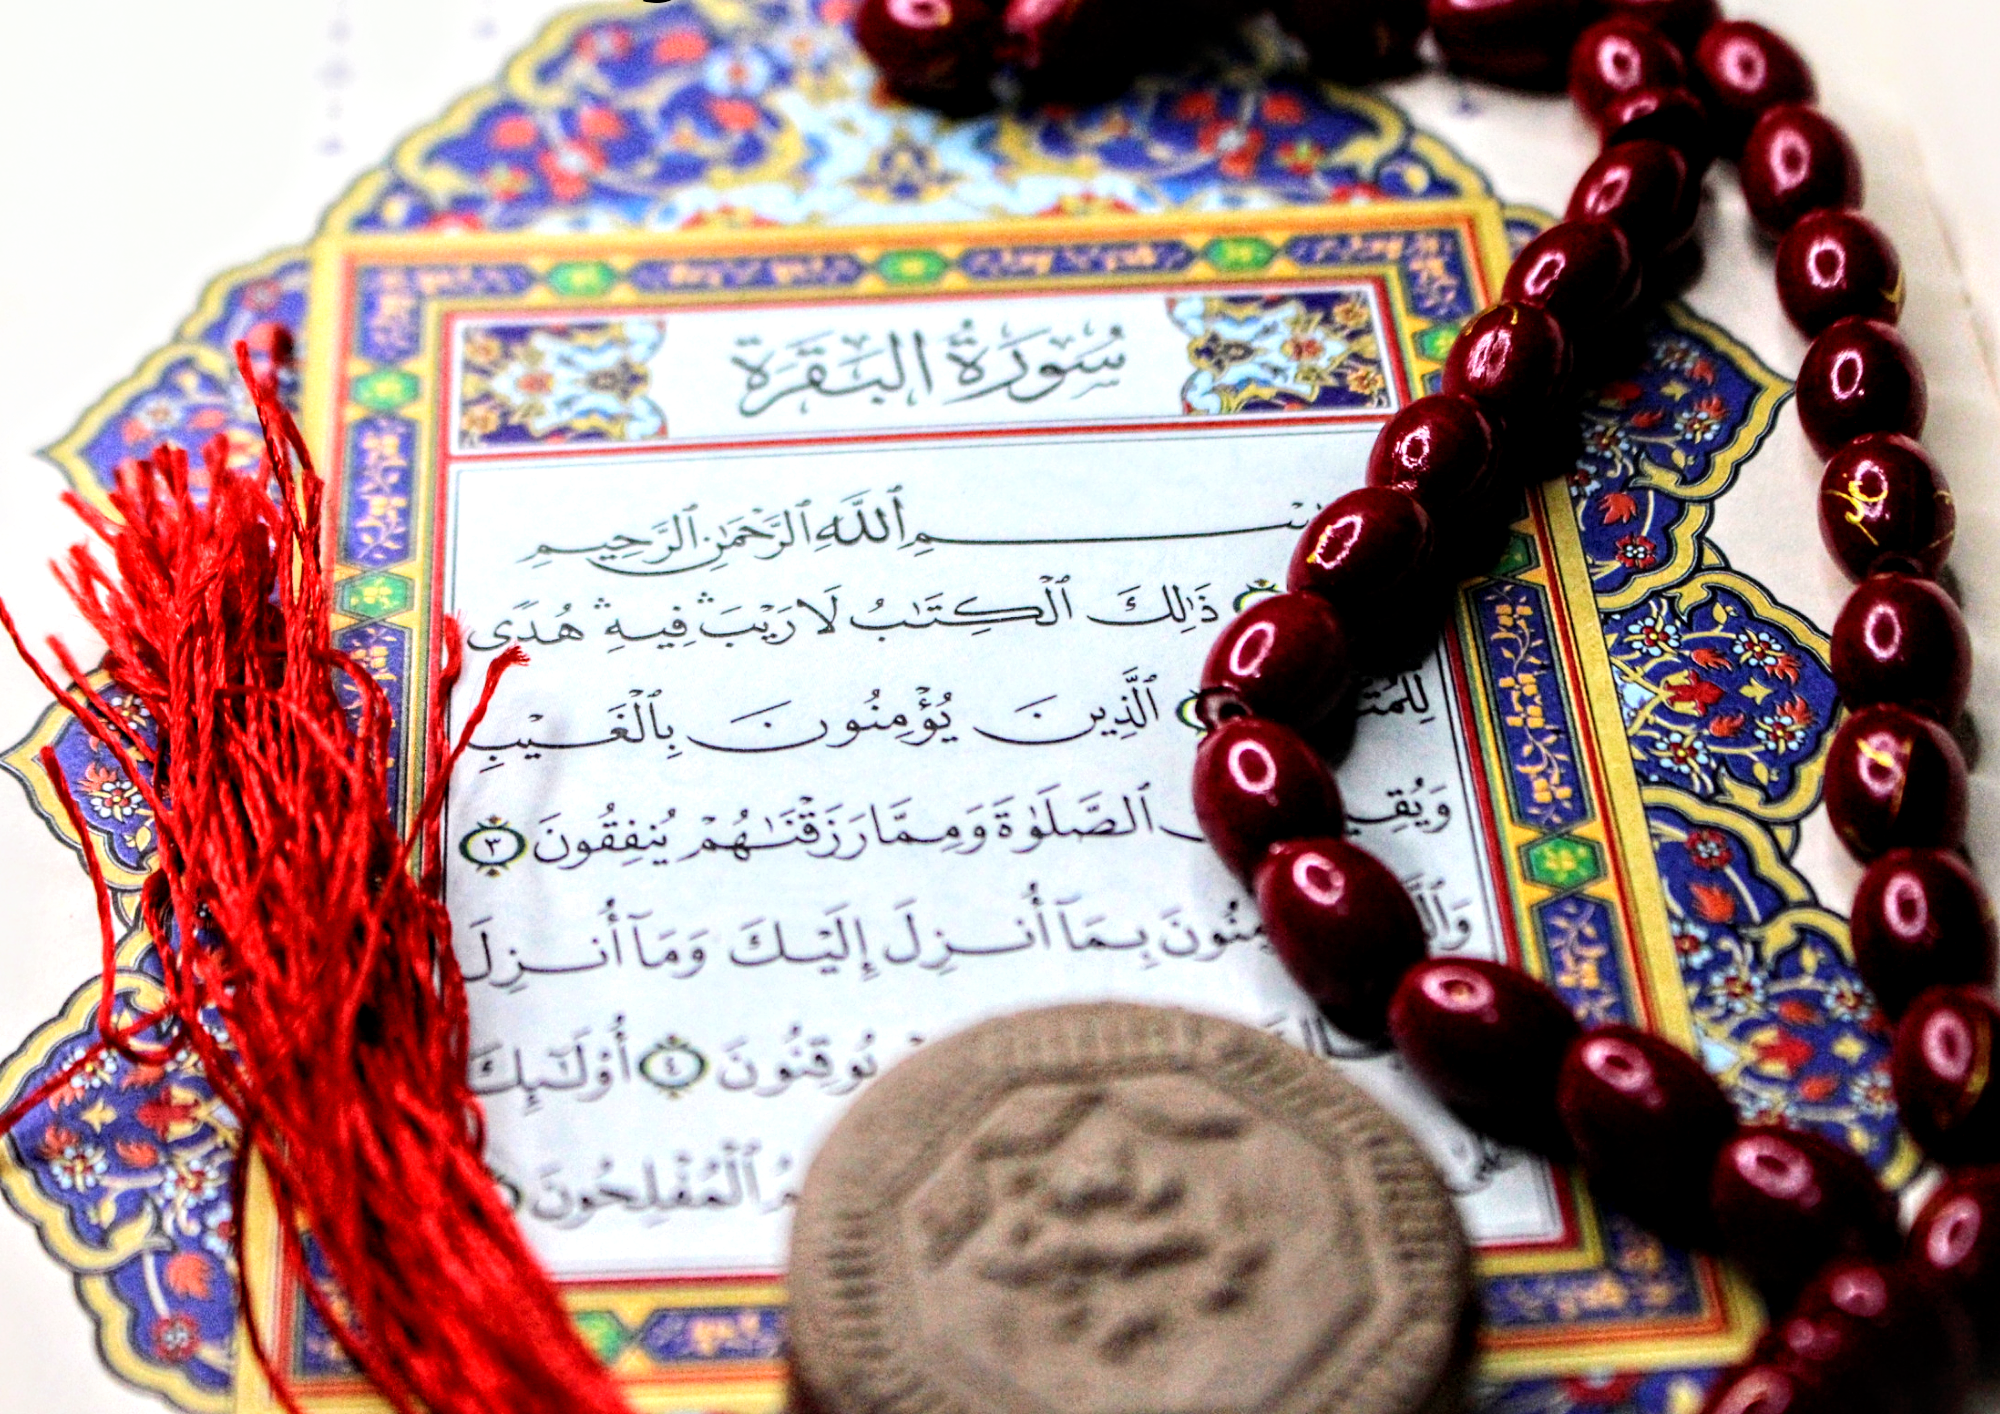 سُورَةُ البَقَرَةِ
بِسْمِ ٱللَّهِ ٱلرَّحْمَٰنِ ٱلرَّحِيمِ
ذَٰلِكَ ٱلْكِتَٰبُ لَا رَيْبَ ۛ فِيهِ ۛ هُدًى
ٱلَّذِينَ يُؤْمِنُونَ بِٱلْغَيْبِ
ٱلصَّلَوٰةَ وَمِمَّا رَزَقْنَٰهُمْ يُنفِقُونَ ٣
بِمَآ أُنزِلَ إِلَيْكَ وَمَآ أُنزِلَ
يُوقِنُونَ ٤ أُوْلَٰٓئِكَ
ٱلْمُفْلِحُونَ